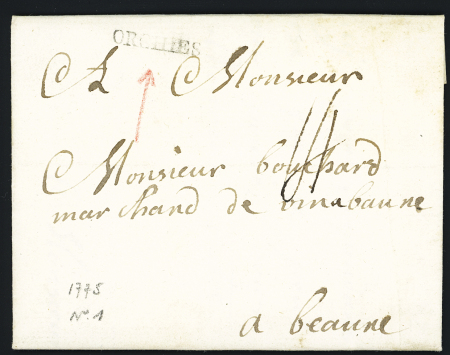 ORCHIES
A Monsieur
Monsieur bouchard
marchand de vin a baune
1775
N° 1
a beaune